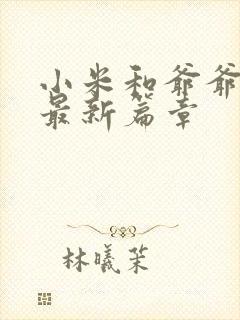 小米和爷爷
最新篇章
林曦茉